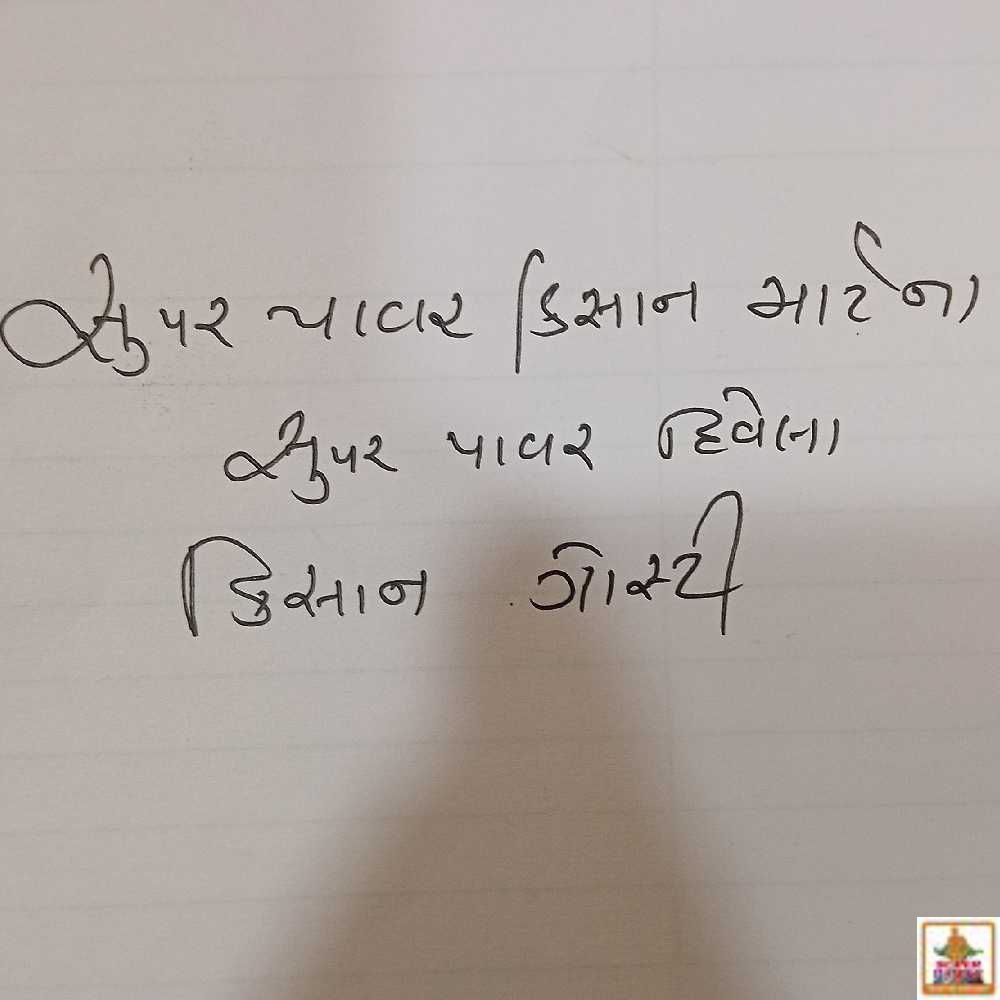 સુપર પાવર કિસાન માટેના
સુપર પાવર દિવેલા
કિસાન ગોસ્ટી